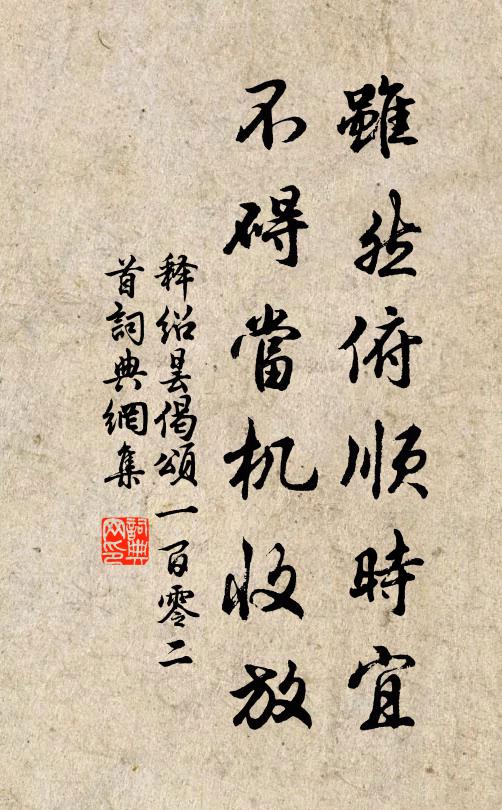 雖然俯順時宜
不碍當机收放
释绍昙偈頌一百零二
首詞典網集
詞典
网印